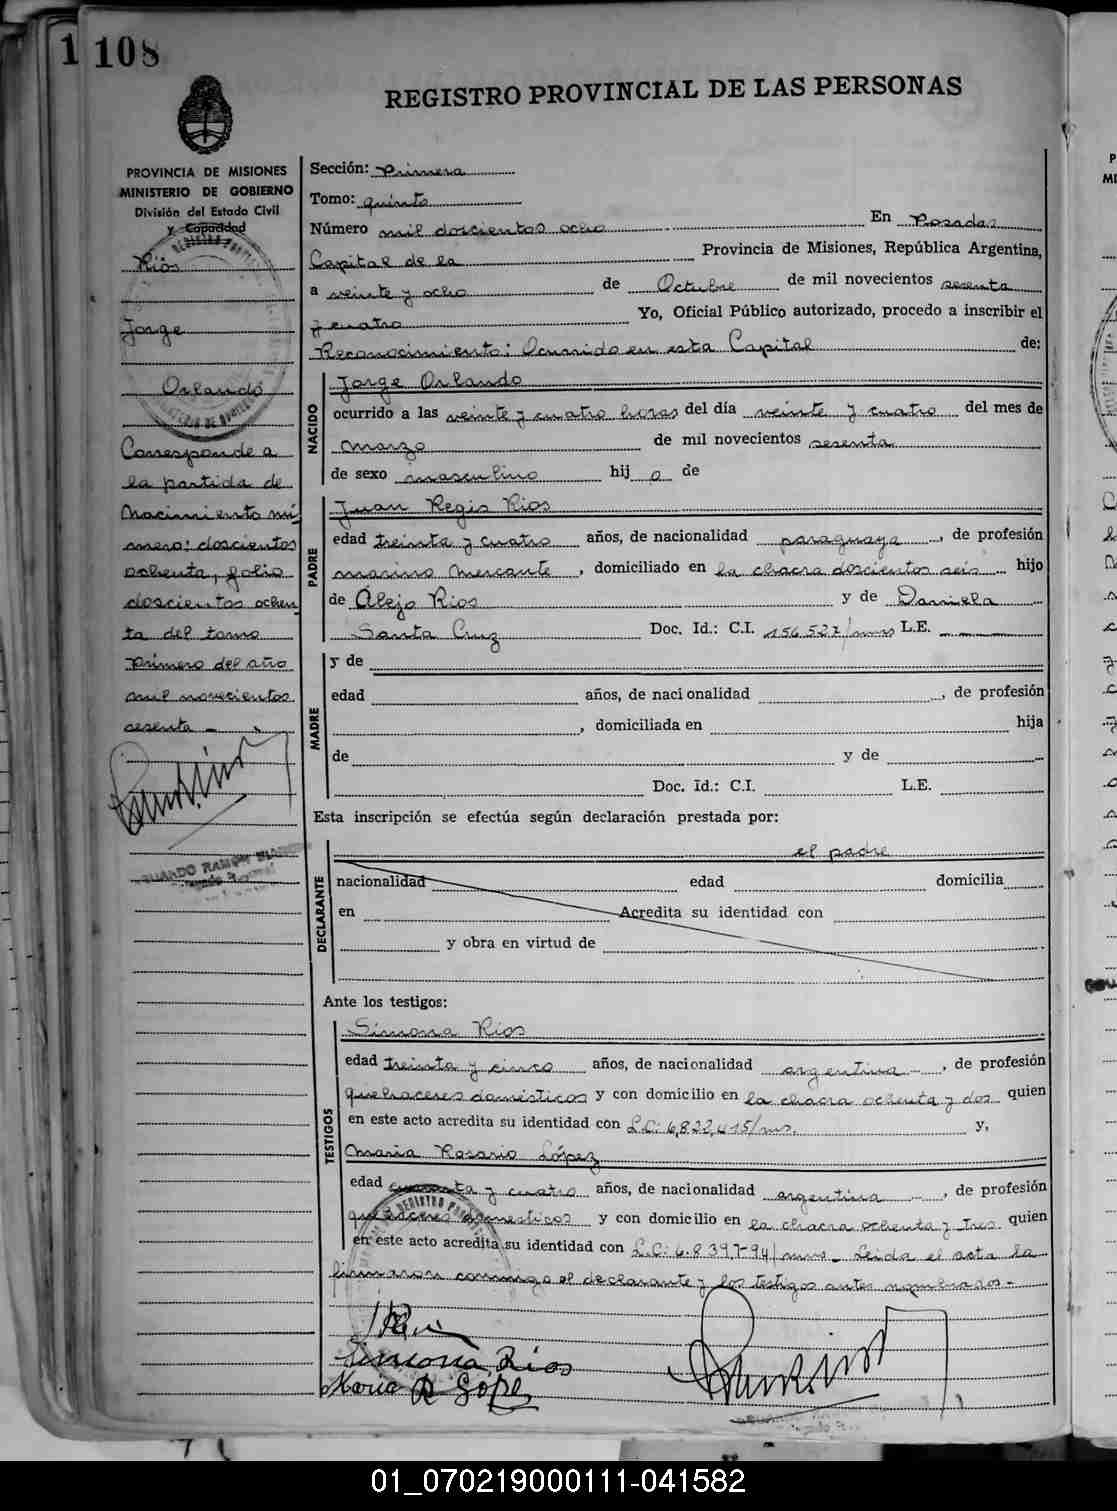 1 108
REGISTRO PROVINCIAL DE LAS PERSONAS
PROVINCIA DE MISIONES
MINISTERIO DE GOBIERNO
División del Estado Civil
y Capacidad
Ríos
Jorge
Orlando
Corresponde a
la partida de
Nacimiento nú
mero: doscientos
ochenta, folio
doscientos ochen
ta del tomo
primero del año
mil novecientos
sesenta -
Sección: Primera
Tomo: quinto
Número mil doscientos ocho En Posadas
Capital de la Provincia de Misiones, República Argentina,
a veinte y ocho de Octubre de mil novecientos sesenta
y cuatro Yo, Oficial Público autorizado, procedo a inscribir el
Reconocimiento: Ocurrido en esta Capital de:
NACIDO
Jorge Orlando
ocurrido a las veinte y cuatro horas del día veinte y cuatro del mes de
marzo de mil novecientos sesenta
de sexo masculino hij o de
PADRE
Juan Regis Rios
edad treinta y cuatro años, de nacionalidad paraguaya, de profesión
marino mercante, domiciliado en la chacra doscientos seis hijo
de Alejo Rios y de Daniela
Santa Cruz Doc. Id.: C.I. 156.527/mns L.E.
MADRE
y de
edad años, de nacionalidad , de profesión
, domiciliada en hija
de y de
Doc. Id.: C.I. L.E.
Esta inscripción se efectúa según declaración prestada por:
DECLARANTE
el padre
nacionalidad edad domicilia
en Acredita su identidad con
y obra en virtud de
Ante los testigos:
TESTIGOS
Simona Rios
edad treinta y cinco años, de nacionalidad argentina, de profesión
quehaceres domésticos y con domicilio en la chacra ochenta y dos quien
en este acto acredita su identidad con L.C: 6.822.415/ms. y,
Maria Rosario López
edad cuarenta y cuatro años, de nacionalidad argentina, de profesión
quehaceres domesticos y con domicilio en la chacra ochenta y tres quien
en este acto acredita su identidad con L.C: 6.839.794/mns - Leida el acta la
firmaron conmigo el declarante y los testigos antes nombrados -
Simona Rios
Maria R Lópe
01_070219000111-041582